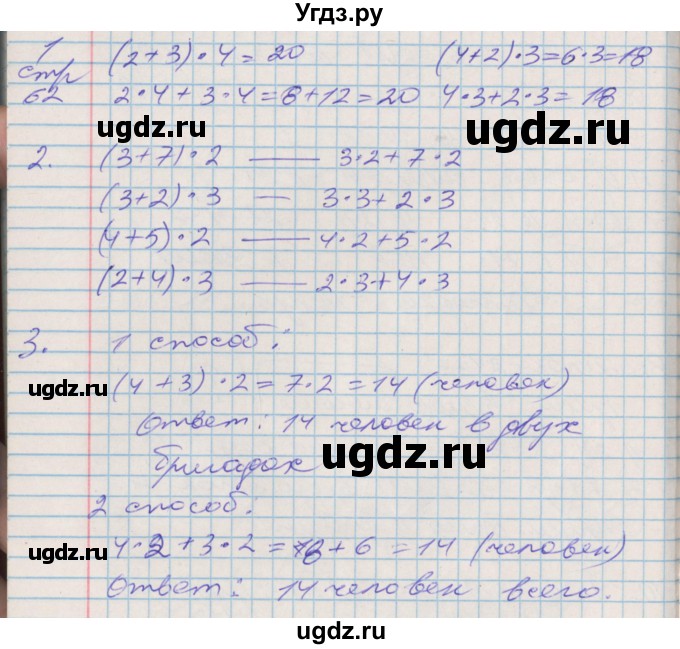 Угдз.ру
1 (2+3)·4=20 (4+2)·3=6·3=18
стр
62 2·4+3·4=8+12=20 4·3+2·3=18
ugdz.ru ugdz.ru
2. (3+7)·2 — 3·2+7·2
(3+2)·3 — 3·3+2·3
(4+5)·2 — 4·2+5·2
(2+4)·3 — 2·3+4·3
3. 1 способ:
ugdz.ru
(4+3)·2=7·2=14 (человек)
Ответ: 14 человек в двух
бригадах ugdz.ru
2 способ:
ugdz.ru
4·2+3·2=8+6=14 (человек)
Ответ: 14 человек всего.
ugdz.ru